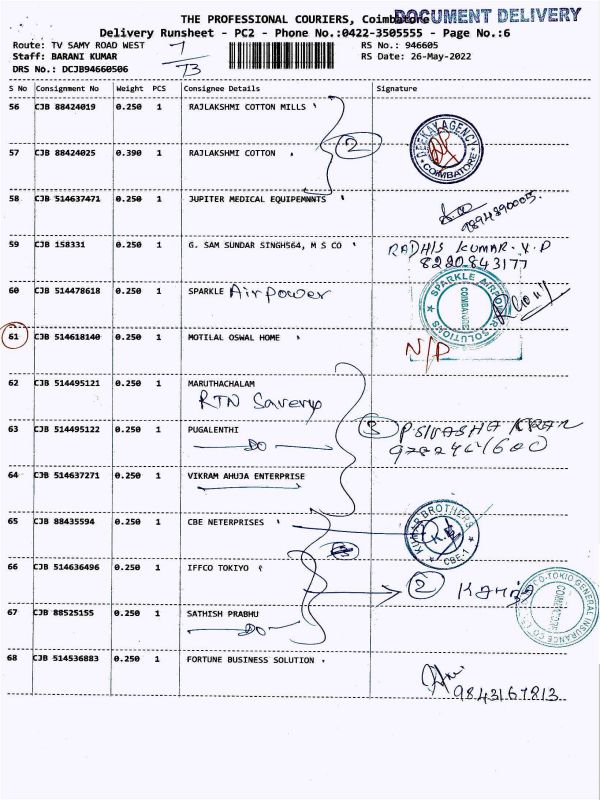 DOCUMENT DELIVERY
THE PROFESSIONAL COURIERS, Coimbatore
Delivery Runsheet - PC2 - Phone No.:0422-3505555 - Page No.:6
Route: TV SAMY ROAD WEST
RS No.: 946605
Staff: BARANI KUMAR
RS Date: 26-May-2022
DRS No.: DCJB94660506
73
S No Consignment No Weight PCS Consignee Details Signature
56 CJB 88424019 0.250 1 RAJLAKSHMI COTTON MILLS
2
DEEKAY AGENCY
COIMBATORE
57 CJB 88424025 0.390 1 RAJLAKSHMI COTTON
58 CJB 514637471 0.250 1 JUPITER MEDICAL EQUIPEMNNTS
9894890005.
59 CJB 158331 0.250 1 G. SAM SUNDAR SINGH564, M S CO
RADHIS KUMAR.V.P
8220843177
60 CJB 514478618 0.250 1 SPARKLE Airpower
SPARKLE AIRPOWER SOLUTIONS
COIMBATORE
61 CJB 514618140 0.250 1 MOTILAL OSWAL HOME
N/P
62 CJB 514495121 0.250 1 MARUTHACHALAM
RTN Saverys
63 CJB 514495122 0.250 1 PUGALENTHI
DO
3
64 CJB 514637271 0.250 1 VIKRAM AHUJA ENTERPRISE
65 CJB 88435594 0.250 1 CBE NETERPRISES
KUMAR BROTHERS
K.B
CBE-1
66 CJB 514636496 0.250 1 IFFCO TOKIYO
2
IFFCO-TOKIO GENERAL INSURANCE CO
67 CJB 88525155 0.250 1 SATHISH PRABHU
DO
68 CJB 514536883 0.250 1 FORTUNE BUSINESS SOLUTION
9843167813